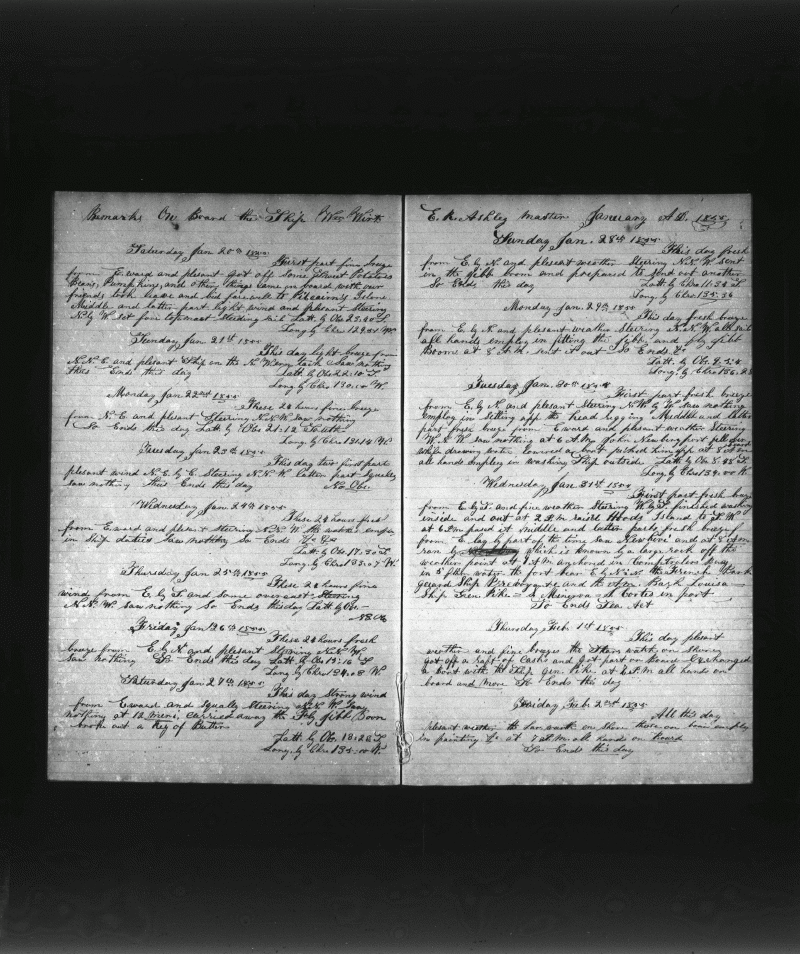 Remarks On Board the Ship Wm Wirt
Saturday Jan 20th 1855
First part fine breeze
from E ward and plesant got off Some Sweet Potatoes
Beans, Pumpkins, and other things came on board with our
friends took leave and bid farewell to Pitcairn's Islane
Middle and latter part light wind and plesant Steering
N by W set fore topmast Studing sail Latt by Obs 23.40 S
Long by Chro 129.51 W
Sunday Jan 21st 1855
This day light breeze from
N.N.E and plesant Ship on the N. tack Saw nothing
thus Ends this day Latt by Obs 22.10 S
Long by Chro 130.10 W.
Monday Jan 22nd 1855
These 24 hours fine breeze
from N.E and plesant Steering N.N.W saw nothing
So Ends this day Latt by Obs 21:12 South
Long by Chro 131.14 W.
Tuesday Jan 23th 1855
This day two first part
plesant wind N.E. by E. Steering N.N.W latter part Squaly
saw nothing thus Ends this day No Obs.
Wednesday Jan 24th 1855
These 24 hours fresh
from E ward and plesant steering N.N.W employ
in Ship duties Saw nothing So Ends
Latt. by Obs 17.30 S
Long by Chro 133.07 W.
Thursday Jan 25th 1855
These 24 hours fine
wind from E. by S. and some overcast Steering
N.N.W. Saw nothing So Ends this day Latt by Obs.
Friday Jan 26th 1855
These 24 hours fresh
breeze from E by N and plesant Steering N.N.W
Saw nothing So Ends this day Latt. by Obs 13:16 S
Long by Chro 134.08 W.
Saturday Jan 27th 1855
This day Strong wind
from E ward and Squally Steering N.N.W Saw
nothing at 12 carried away the Fly Jibb Boom
broke out a Keg of Butter
Latt. by Obs. 13:28 S
Long. by Chro 135.00 W.
E. K. Ashley master January A.D. 1855
Sunday Jan. 28th 1855
This day fresh
from E by N. and plesant weather Steering N.N.W. Sent
in the Jibb boom and prepared to send out another
So Ends this day Latt by Obs 11.34 S
Long. by Chro 135.36
Monday Jan. 29th 1855
This day fresh breeze
from E by N and plesant weather Steering N.N.W all sail
all hands employ in fitting the Jibb and fly Jibb
Boom at 8 A.M. sent it out So Ends
Latt. by Obs. 9.24
Long. by Chro 136.
Tuesday Jan. 30th 1855
First part fresh breeze
from E. by N and plesant Steering N.W by W Saw nothing
employ in Setting up the head rigging Middle and latter
part fresh breeze from E ward and plesant weather Steering
W.N.W saw nothing at 6 A.M John Newberyport fell over
board while drawing water lowered a boat picked him up at 8 A.M
all hands employ in washing Ship outside Latt. by Obs 8.55 S
Long by Chro 139.00 W
Wednesday Jan 31st 1855
First part fresh breeze
from E by S. and fine weather Steering W by S. finished washing
inside and out at 2 P.M. raised Hoods Island to S.W
at 6 P.M passed it middle and latter parts fresh breeze
from E. lay by part of the time saw and at 8 A.M
ran by which is known by a large rock off the
weather point at 1 P.M anchored in Comptrolers Bay
in 5 fthm water the fort bear E. by N. the French Bark
and the Am. Bark Louisa
Ship Gen Pike in port
So Ends Sea Act
Thursday Feb. 1st 1855
This day plesant
weather and fine breezes the Starn watch on Shore
got off a raft of Casks and got part on board Exchanged
a boat with the Ship Gen Pike at 6 P.M all hands on
board and more So Ends this day
Friday Feb. 2nd 1855
All this day
plesant weather the Lar. watch on Shore those on board employ
in painting &c at 7 P.M all hands on board
So Ends this day